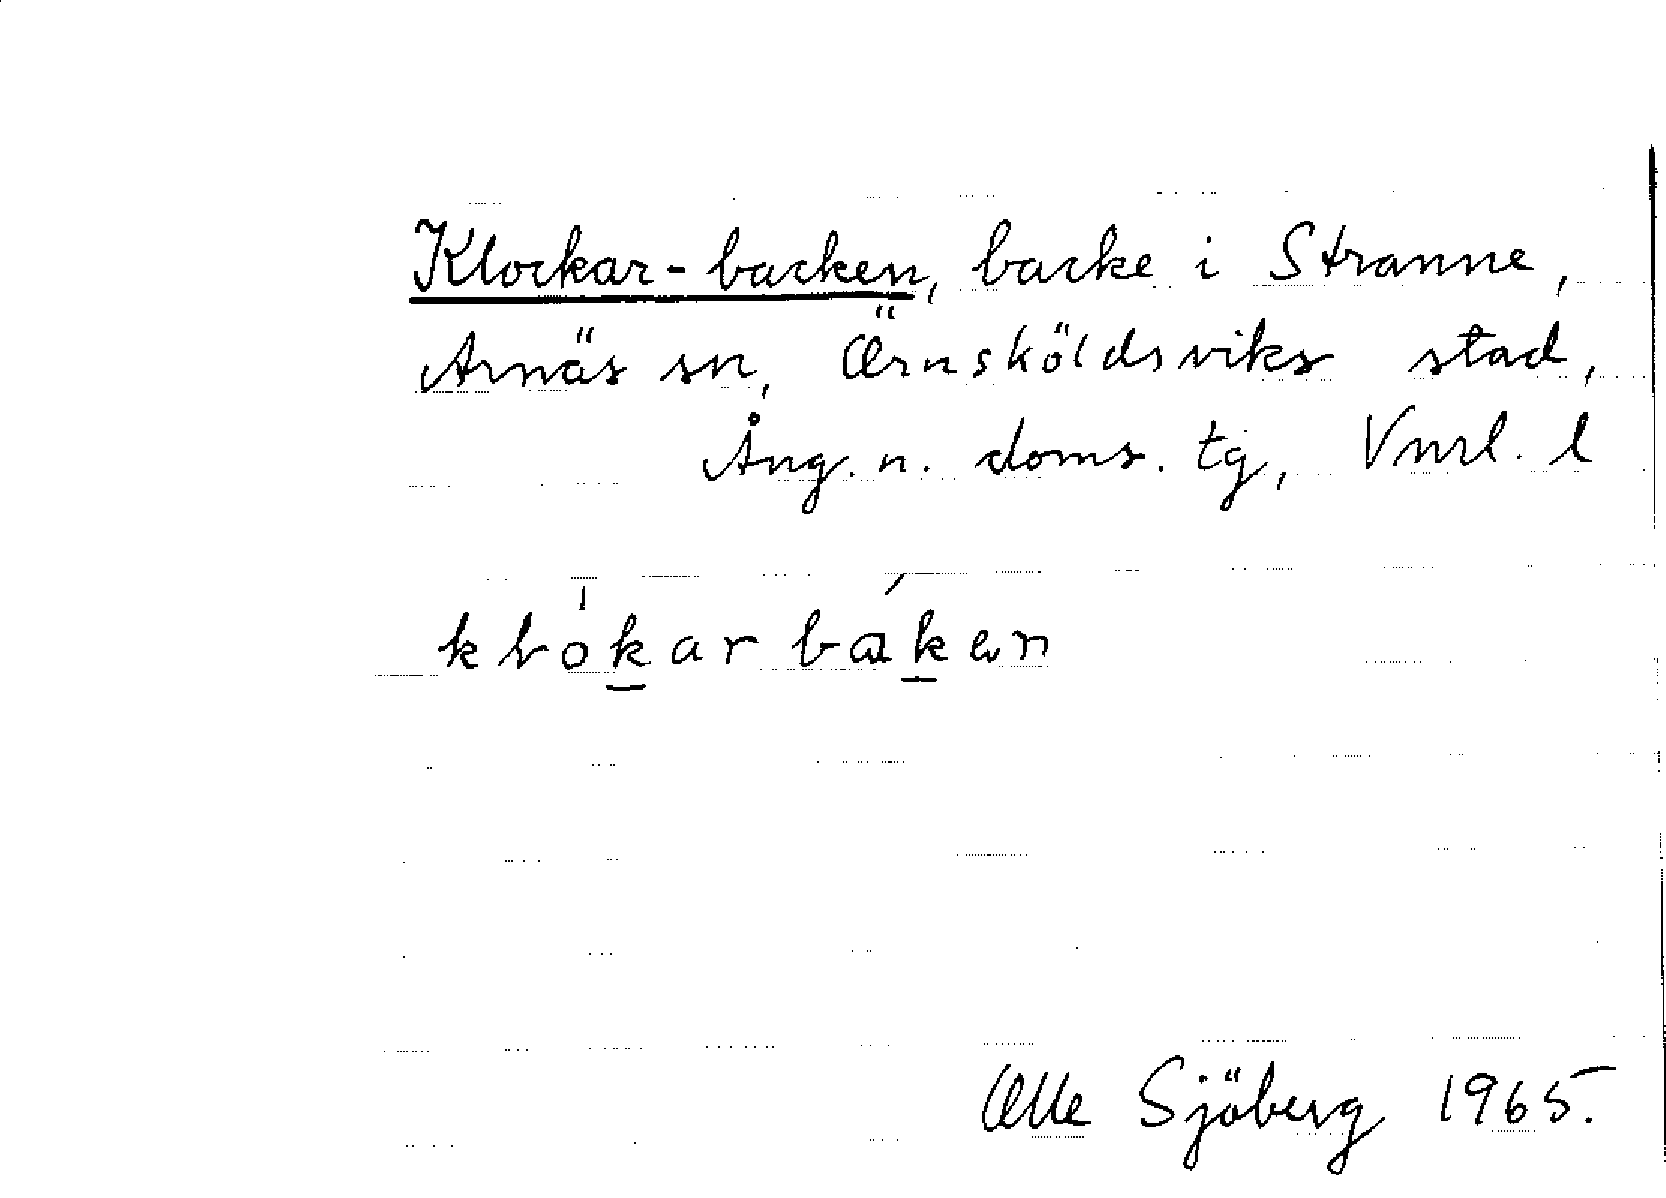 Klockar-backen, backe i Stranne,
Arnäs sn, Örnsköldsviks stad,
Ång. n. doms. tg, Vnrl. l
klokar baken
Olle Sjöberg 1965.